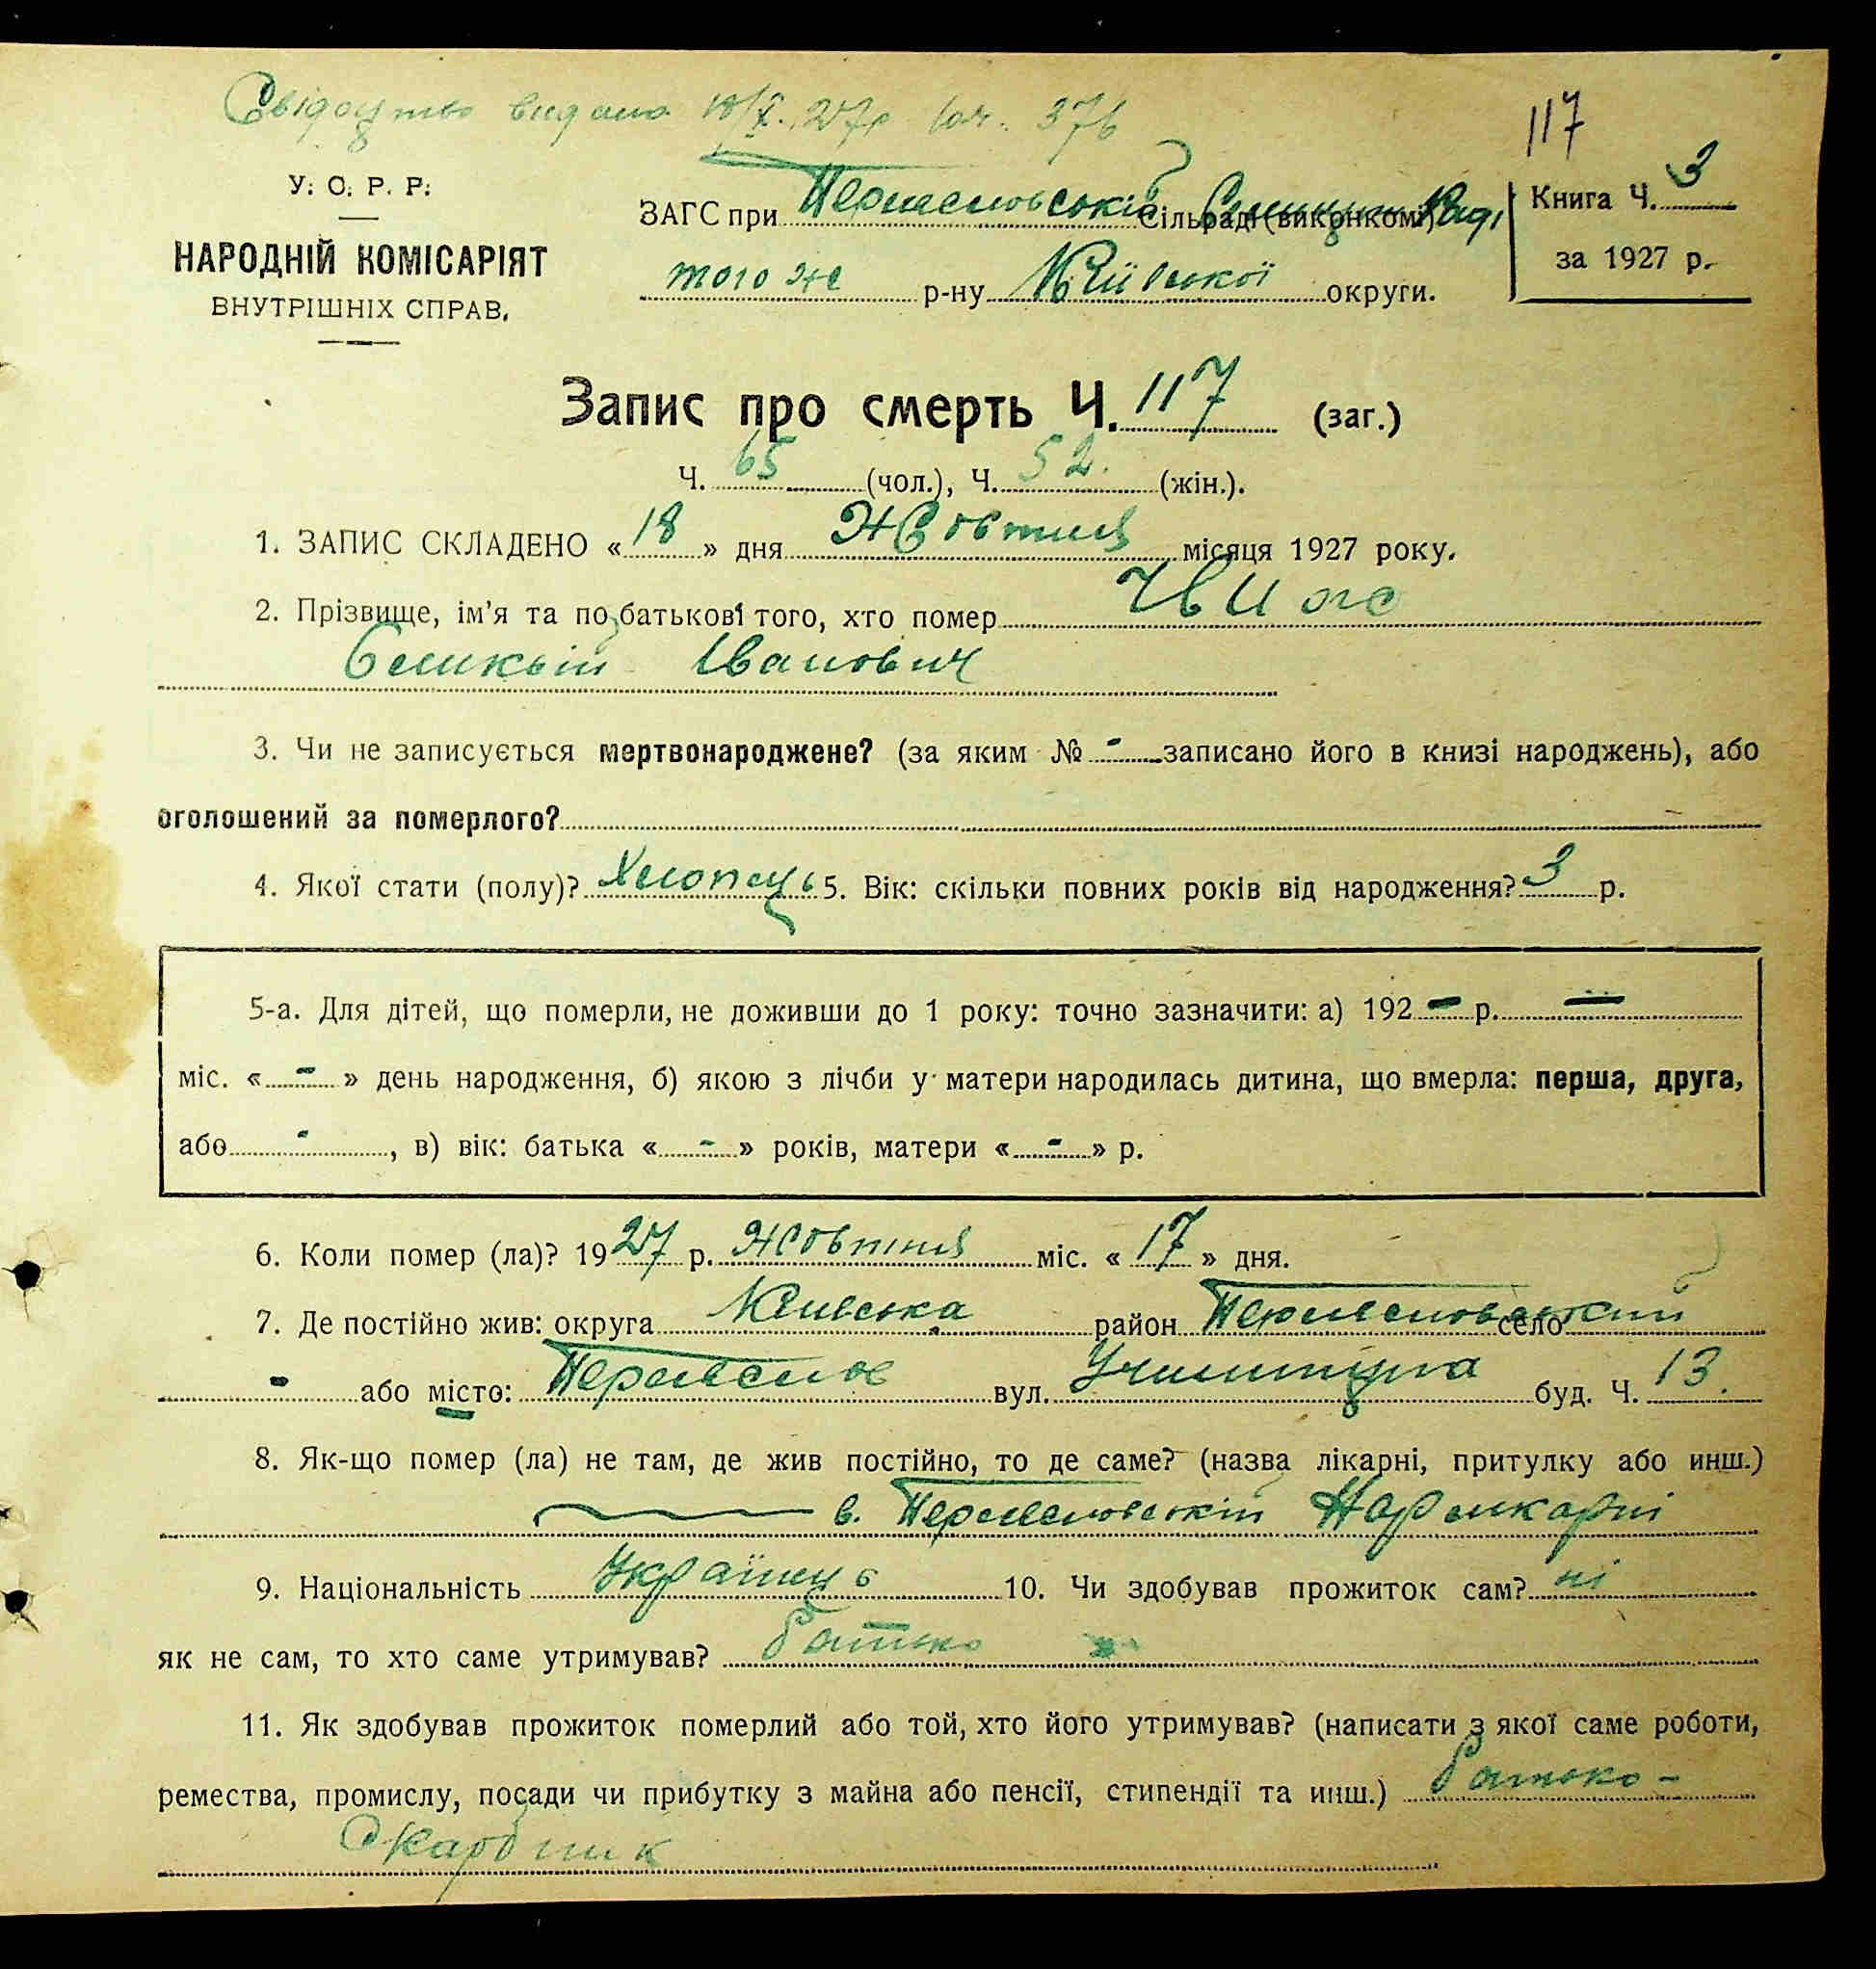 Свідоцтво видано 18/X. 27р 376
117
У. С. Р. Р.
НАРОДНІЙ КОМІСАРІЯТ
ВНУТРІШНІХ СПРАВ.
ЗАГС при Сільраді (виконкомі) Раді
того же р-ну Київської округи.
Книга Ч. 3
за 1927 р.
Запис про смерть Ч. 117 (заг.)
Ч. 65 (чол.), Ч. 52. (жін.).
1. ЗАПИС СКЛАДЕНО « 18 » дня Жовтня місяця 1927 року.
2. Прізвище, ім’я та по батькові того, хто помер
Іванович
3. Чи не записується мертвонароджене? (за яким № - записано його в книзі народжень), або
оголошений за померлого?
4. Якої стати (полу)? Хлопець 5. Вік: скільки повних років від народження? 3 р.
5-а. Для дітей, що померли, не доживши до 1 року: точно зазначити: а) 192 - р. -
міс. « - » день народження, б) якою з лічби у матери народилась дитина, що вмерла: перша, друга,
або - , в) вік: батька « - » років, матери « - » р.
6. Коли помер (ла)? 1927 р. Жовтня міс. « 17 » дня.
7. Де постійно жив: округа Київська район село
- або місто: вул. буд. Ч. 13.
8. Як-що помер (ла) не там, де жив постійно, то де саме? (назва лікарні, притулку або инш.)
в.
9. Національність Українець 10. Чи здобував прожиток сам? ні
як не сам, то хто саме утримував? батько
11. Як здобував прожиток померлий або той, хто його утримував? (написати з якої саме роботи,
ремества, промислу, посади чи прибутку з майна або пенсії, стипендії та инш.) батько -
Скарбник